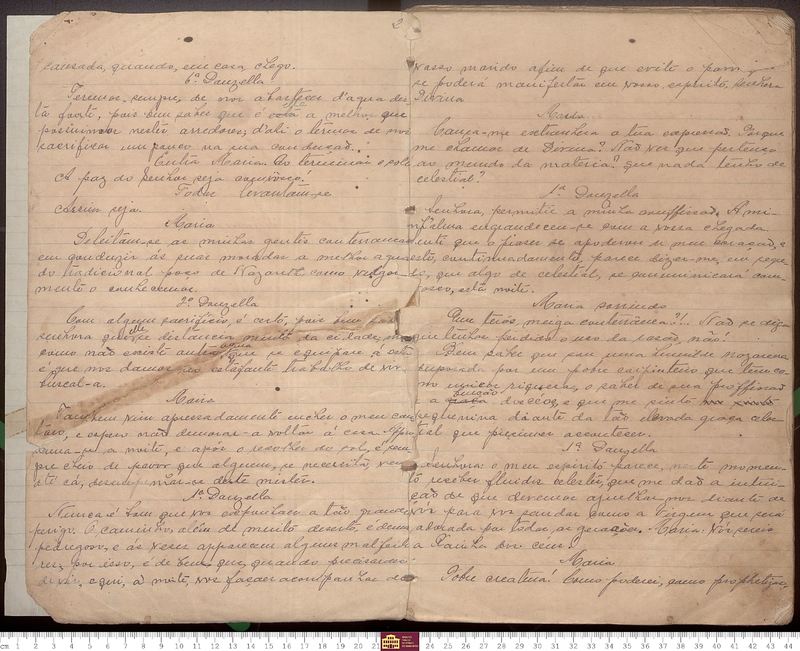 cansada, quando, em casa, chego.
6ª Donzella
Teremos, sempre, de nos abastecer d'agua des-
ta fonte, pois bem sabes que é esta a melhor que
possuimos nestes arredores; d'ali o termos de nos
sacrificar um pouco na sua conducção.
Maria. Ao terminar o
A paz do Senhor seja comvosco!
Todas levantam-se
Assim seja.
Maria
Deleitam-se as minhas gentis conterraneas
em conduzir ás suas moradas a melhor agua
do tradicional poço de Nazareth como vulgar-
mente o conhecemos.
2ª Donzella
Com algum sacrificio, é certo, pois bem
senhora que elle distancia muito da cidade,
como não existe outra agua que se equipare a esta
é que nos damos ao estafante trabalho de vir
buscal-a.
Maria
Tambem vim apressadamente encher o meu can-
taro, e espero não demorar a voltar á casa.
a noite, e após o recolher do sol, é sem-
pre cheio de pavor que alguem, se necessita, vem
até cá, desempenhar-se deste mister.
1ª Donzella
Nunca é bom que vos exponhaes a tão grande
perigo. O caminho, além de muito deserto, é
pedregoso, e ás vezes apparecem alguns malfeito-
res; por isso, é de bem que, quando precisardes
de vir, aqui, á noite, vos façaes acompanhar de
2
vosso marido afim de que evite o pavor que
se poderá manifestar em vosso espirito, senhora
Divina
Maria
Causa-me extranheza a tua expressão. Porque
me chamas de Divina? Não ves que pertenço
ao mundo da materia? que nada tenho de
celestial?
1ª Donzella
Senhora, permitti a minha confissão. A mi-
nh'alma engrandeceu-se com a vossa chegada.
que o prazer se apoderou do meu coração, e
este, continuadamente, parece dizer-me, em segre-
do, que algo de celestial, se communicará com-
vosco, esta noite.
Maria sorrindo
Que tens, meiga conterranea?!.. Não se diga
que tenhas perdido o uso da razão, não!
Bem sabes que sou uma humilde nazarena
esposada por um pobre carpinteiro que tem co-
mo unica riqueza, o saber de sua profissão
e a benção dos céos, e que me sinto
pequenina diante da tão elevada graça celes-
tial que precisava acontecer.
1ª Donzella
Senhora: o meu espirito parece, neste momen-
to receber fluidos celestes, que me dão a intui-
ção de que devemos ajoelhar-nos diante de
vós para vos saudar como a Virgem que será
adorada por todas as gerações. Maria: Vós sereis
a Rainha dos céus.
Maria
Pobre creatura! Como poderei, como prophetizas,
cm 1 2 3 4 5 6 7 8 9 10 11 12 13 14 15 16 17 18 19 20 21 24 25 26 27 28 29 30 31 32 33 34 35 36 37 38 39 40 41 42 43 44